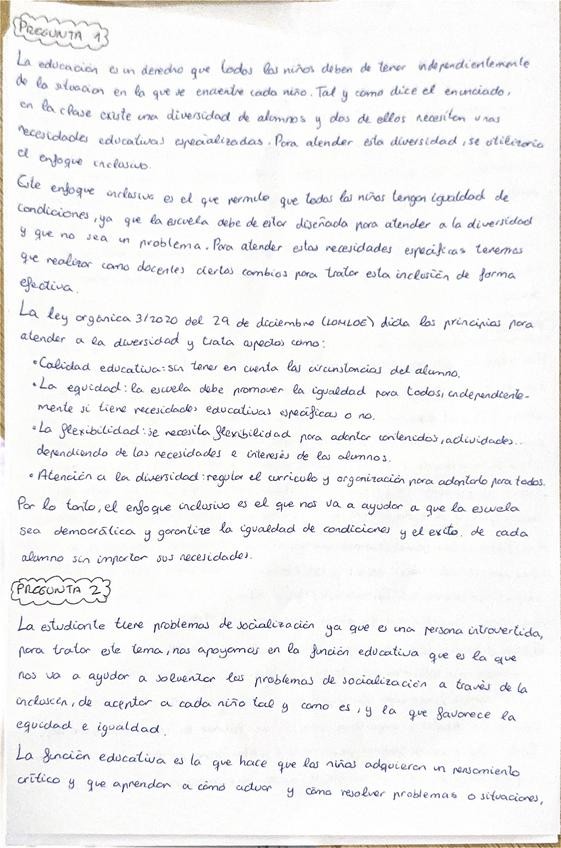 PREGUNTA 1
La educación es un derecho que todos los niños deben de tener independientemente
de la situacion en la que se encuentre cada niño. Tal y como dice el enunciado,
en la clase existe una diversidad de alumnos y dos de ellos necesiten unas
necesidades educativas especializadas. Para atender esta diversidad, se utilizaria
el enfoque inclusivo.
Este enfoque inclusivo es el que permite que todos los niños tengan igualdad de
condiciones, ya que la escuela debe de estar diseñada para atender a la diversidad
y que no sea un problema. Para atender estas necesidades especificas tenemos
que realizar como docentes ciertos cambios para tratar esta inclusión de forma
efectiva.
La ley orgánica 3/2020 del 29 de diciembre (LOMLOE) dicta los principios para
atender a la diversidad y trata aspectos como:
• Calidad educativa: sin tener en cuenta las circunstancias del alumno.
• La equidad: la escuela debe promover la igualdad para todos, independiente-
mente si tiene necesidades educativas especificas o no.
• La flexibilidad: se necesita flexibilidad para adaptar contenidos, actividades..
dependiendo de las necesidades e interesés de los alumnos.
• Atención a la diversidad: regular el curriculo y organización para adaptarlo para todos.
Por lo tanto, el enfoque inclusivo es el que nos va a ayudar a que la escuela
sea democrática y garantize la igualdad de condiciones y el exito de cada
alumno sin importar sus necesidades.
PREGUNTA 2
La estudiante tiene problemas de socialización ya que es una persona introvertida,
para tratar este tema, nos apoyamos en la función educativa que es la que
nos va a ayudar a solventar los problemas de socialización a través de la
inclusión, de aceptar a cada niño tal y como es, y la que favorece la
equidad e igualdad.
La función educativa es la que hace que los niños adquieran un pensamiento
crítico y que aprendan a cómo actuar y cómo resolver problemas o situaciones,